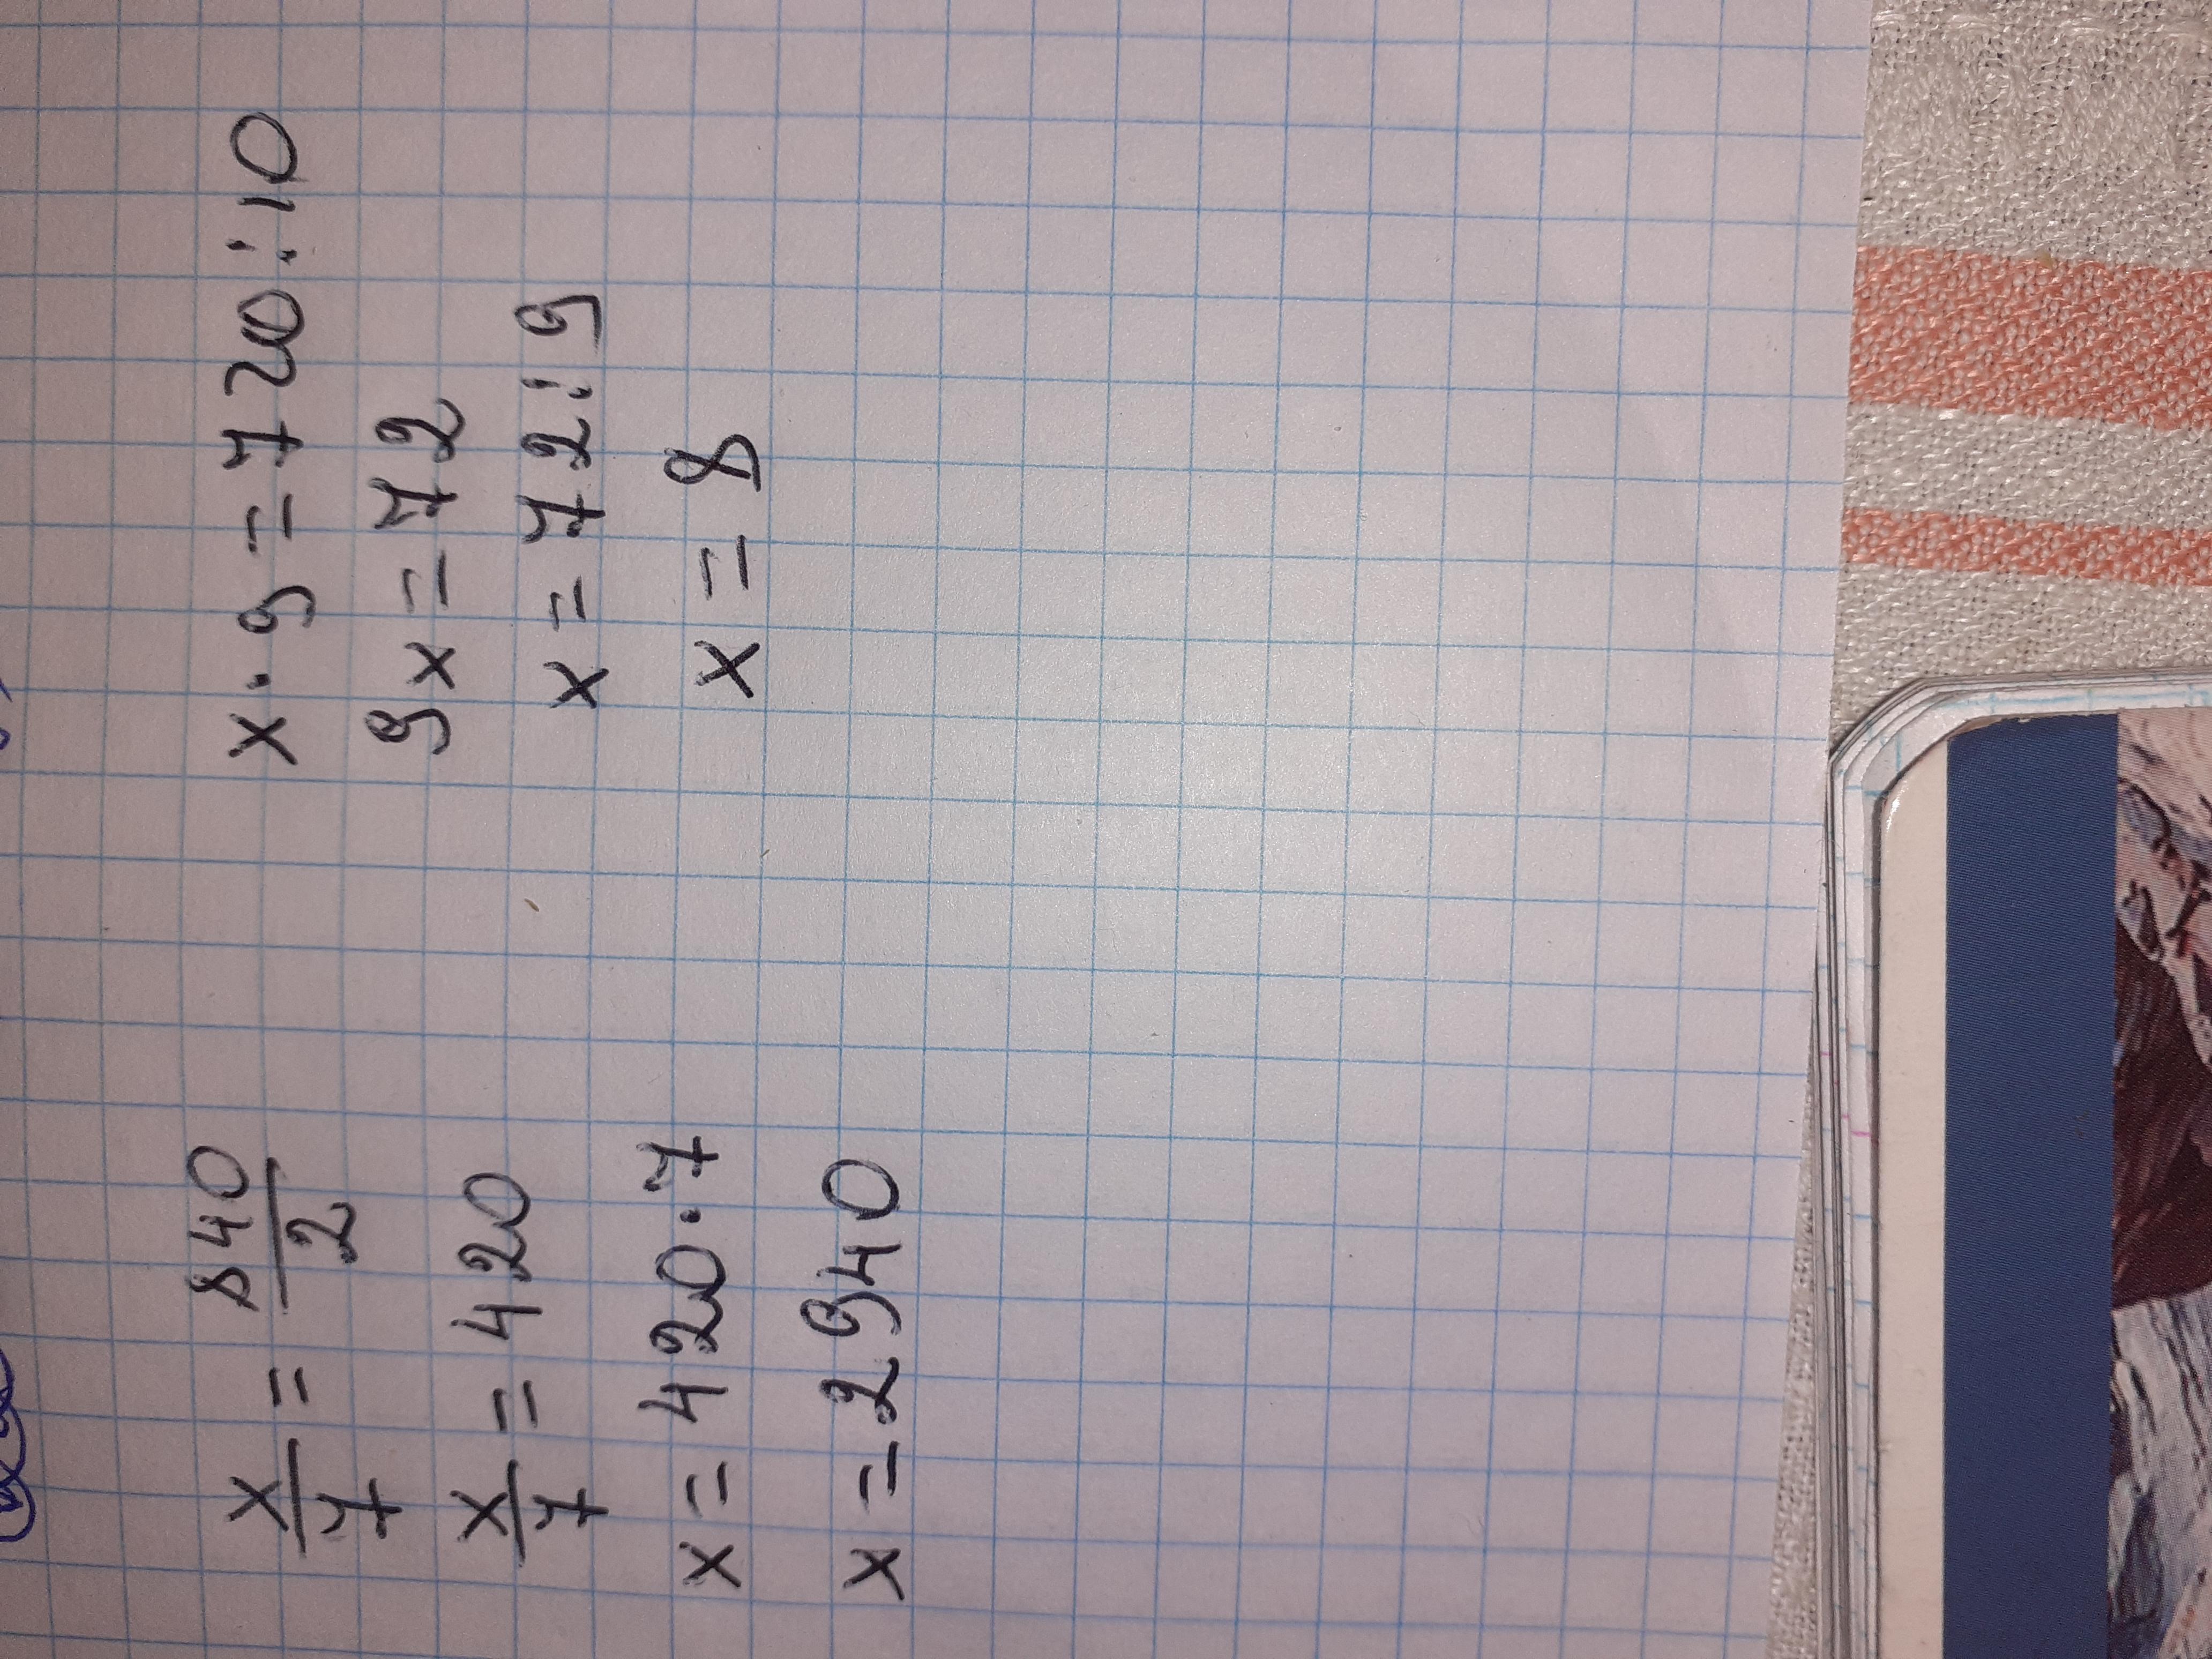 x/7 = 840/2
x/7 = 420
x = 420 · 7
x = 2940
x · 9 = 720 : 10
9x = 72
x = 72 : 9
x = 8